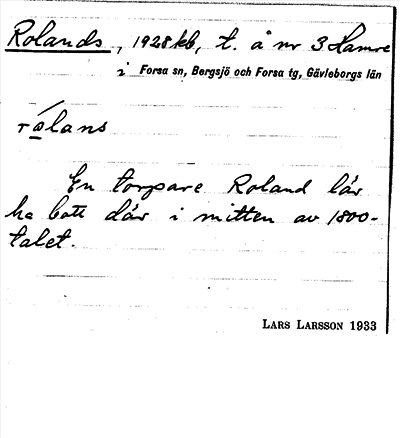 Rolands, 1928 kb, t. å nr 3 Hamre
i Forsa sn, Bergsjö och Forsa tg, Gävleborgs län
rólans
En torpare Roland lär
ha bott där i mitten av 1800-
talet.
LARS LARSSON 1933